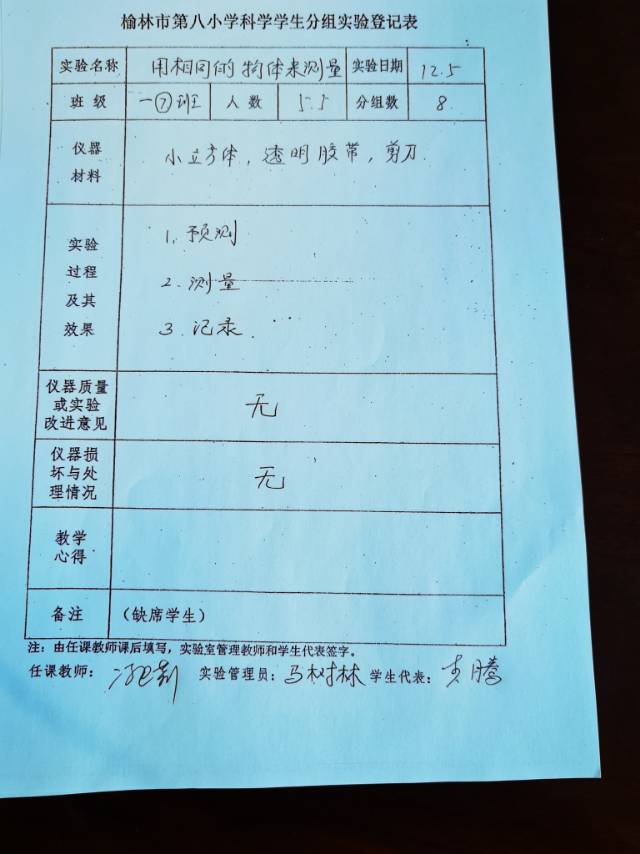 榆林市第八小学科学学生分组实验登记表
实验名称 用相同的物体来测量 实验日期 12.5
班级 一⑦班 人数 55 分组数 8
仪器
材料
小立方体，透明胶带，剪刀
实验
过程
及其
效果
1. 预测
2. 测量
3. 记录
仪器质量
或实验
改进意见
无
仪器损
坏与处
理情况
无
教学
心得
备注 (缺席学生)
注：由任课教师课后填写，实验室管理教师和学生代表签字。
任课教师： 实验管理员：马树林 学生代表：